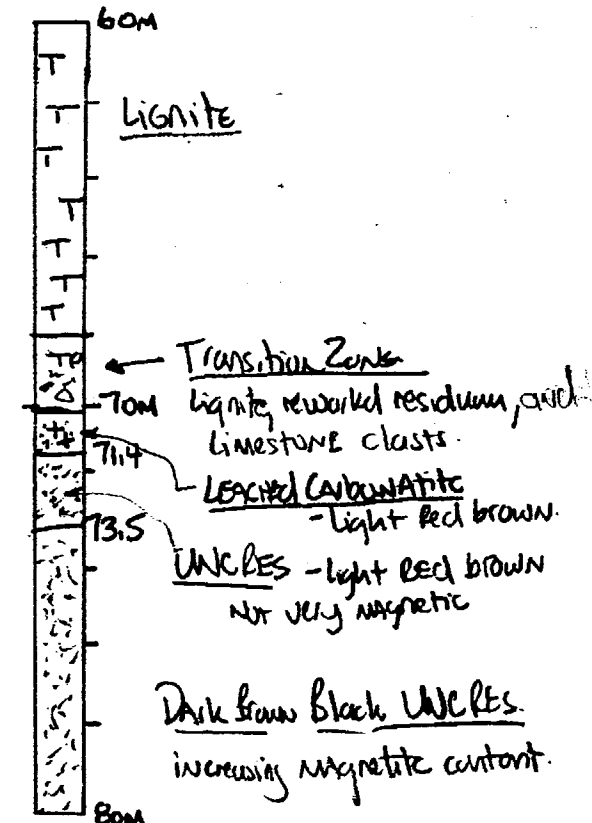 60M
T
T
Lignite
T
T
T
T
T
Transition Zone
Lignite, reworked residuum, and
70M
Limestone clasts.
71.4
Leached Carbonatite
- Light Red brown.
73.5
UNCRES - light RED brown
Not very magnetic
Dark Brown Black UNCRES.
increasing magnetite content.
80M